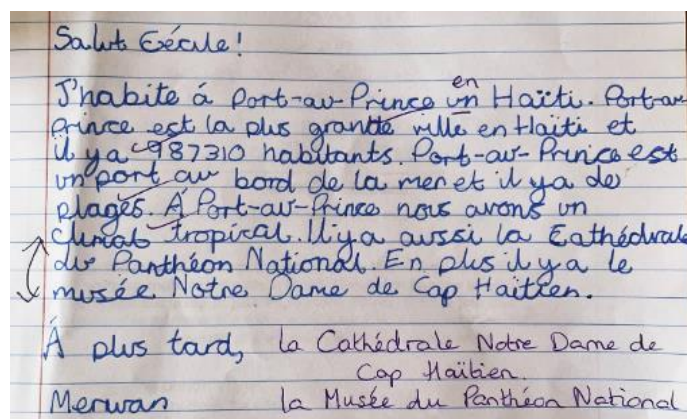 Salut Cécile!
en
J'habite á Port-au-Prince un Haïti. Port-au
prince est la plus grande ville en Haiti et
il y a 987310 habitants. Port-au-Prince est
un port au bord de la mer et il y a de
plages. Á Port-au-Prince nous avons un
climat tropical. Il y a aussi la Cathédrale
du Panthéon National. En plus il y a le
musée Notre Dame de Cap Haïtien.
Á plus tard, la Cathédrale Notre Dame de
Cap Haïtien.
Merwan la Musée du Panthéon National